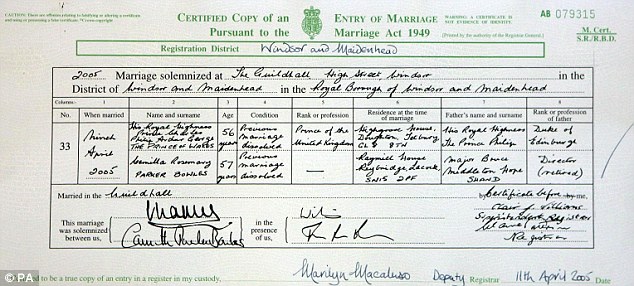 CERTIFIED COPY of an ENTRY OF MARRIAGE
Pursuant to the Marriage Act 1949
AB 079315
M. Cert.
S.R./R.B.D.
Registration District Windsor and Maidenhead
2005 Marriage solemnized at The Guildhall High Street Windsor in the
District of Windsor and Maidenhead in the Royal Borough of Windsor and Maidenhead
Columns 1 2 3 4 5 6 7 8
No. When married Name and surname Age Condition Rank or profession Residence at the time of marriage Father's name and surname Rank or profession of father
33
Ninth April 2005
His Royal Highness Prince Charles Philip Arthur George THE PRINCE OF WALES
56 years
Previous marriage dissolved
Prince of the United Kingdom
Highgrove House, Doughton Tetbury GL8 8TN
His Royal Highness The Prince Philip
Duke of Edinburgh
Camilla Rosemary PARKER BOWLES
57 years
Previous marriage dissolved
—
Raymill House Reybridge Lacock SN15 2PF
Major Bruce Middleton Hope SHAND
Director (retired)
Married in the Guildhall
Certificate before by me,
This marriage was solemnized between us,
Charles
Camilla Parker Bowles
in the presence of us,
Clair Williams
Superintendent Registrar
Registrar
to be a true copy of an entry in a register in my custody,
Marilyn Macaluso Deputy Registrar 11th April 2005 Date
PA